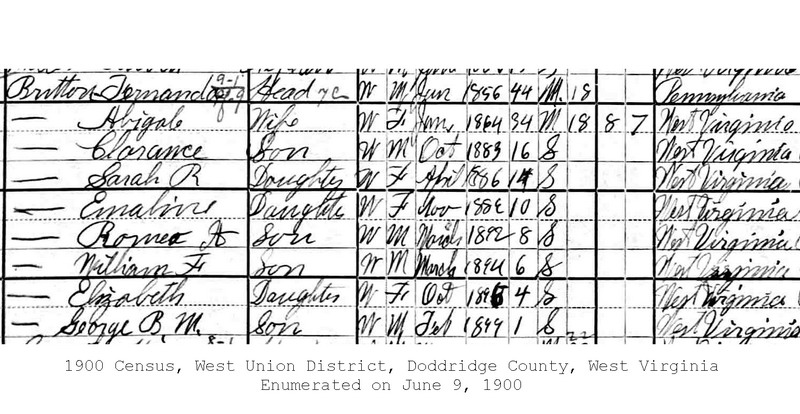 Britton Fernando Head W M Jun 1856 44 M 18 Pennsylvania
— Abigale Wife W F Jan 1864 34 M 18 8 7 West Virginia
— Clarance Son W M Oct 1883 16 S West Virginia
— Sarah R Daughter W F April 1886 14 S West Virginia
— Emaline Daughter W F Nov 10 S West Virginia
— Romeo A Son W M March 1892 8 S West Virginia
— William F Son W M March 1894 6 S West Virginia
— Elizabeth Daughter W F Oct 4 S West Virginia
— George B. M. Son W M Feb 1899 1 S West Virginia
1900 Census, West Union District, Doddridge County, West Virginia
Enumerated on June 9, 1900